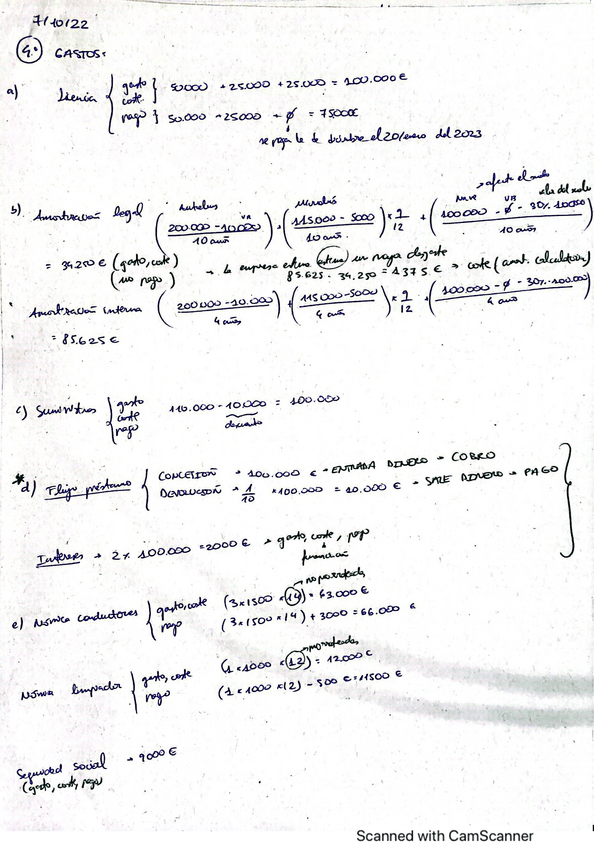 7/10/22
4. GASTOS:
a) Licencia { gasto coste } 50000 + 25.000 + 25.000 = 100.000 €
pago } 50.000 + 25000 + ∅ = 75000€
se paga de diciembre el 20/enero del 2023
→ afecta el suelo
Autobus VR Nave VR valor del suelo
b) Amortización legal (200.000 - 10.000 / 10 años) + (115.000 - 5000 / 10 años) × 9/12 + (100.000 - ∅ - 30% 100.000 / 10 años)
= 34.250 € (gasto, coste) (no pago) → la empresa estima un mayor desgaste
85.625 - 34.250 = € ⇒ coste (amort. calculatoria)
Amortización interna (200.000 - 10.000 / 4 años) + (115.000 - 5000 / 4 años) × 9/12 + (100.000 - ∅ - 30% · 100.000 / 4 años)
= 85.625 €
c) Suministros { gasto coste pago 110.000 - 10.000 = 100.000
descuento
*d) Flujo préstamo { CONCESIÓN → 100.000 € → ENTRADA DINERO → COBRO
DEVOLUCIÓN → 1/10 × 100.000 = 10.000 € → SALE DINERO → PAGO
Intereses → 2% 100.000 = 2000 € → gasto, coste, pago
financiación
→ no prorrateadas
e) Nómina conductores { gasto, coste (3×1500×14) = 63.000 €
pago (3×1500×14) + 3000 = 66.000 €
→ prorrateadas
Nómina limpiador { gasto, coste (1×1000×12) = 12.000 €
pago (1×1000×12) - 500 € = 11500 €
Seguridad Social → 9000 €
(gasto, coste, pago)
Scanned with CamScanner